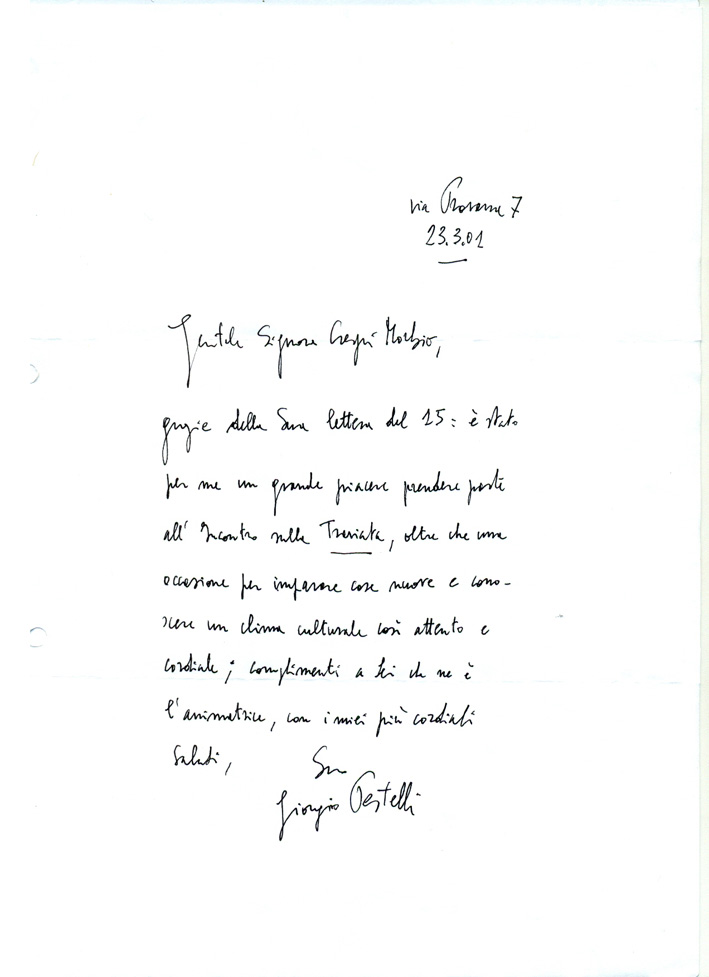 via Provana 7
23.3.01
Gentile Signora Crespi Morbio,
grazie della Sua lettera del 15: è stato
per me un grande piacere prendere parte
all'Incontro sulla Traviata, oltre che una
occasione per imparare cose nuove e cono-
scere un clima culturale così attento e
cordiale; complimenti a Lei che ne è
l'animatrice, con i miei più cordiali
saluti,
Suo
Giorgio Pestelli